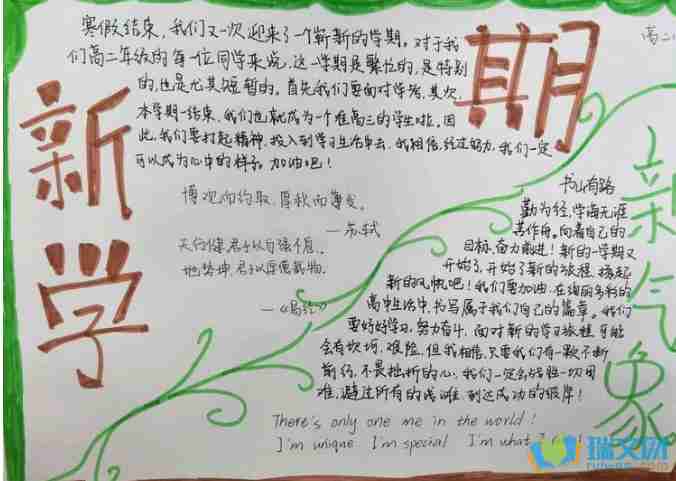 新学期
新气象
高二
寒假结束,我们又一次迎来了一个崭新的学期。对于我
们高二年级的每一位同学来说,这一学期是繁忙的,是特别
的,也是尤其短暂的。首先我们要面对学考,其次,
本学期一结束,我们也就成为一个准高三的学生啦。因
此,我们要打起精神,投入到学习生活中去,我相信,经过努力,我们一定
可以成为心中的样子。加油吧!
博观而约取,厚积而薄发。
—苏轼
天行健,君子以自强不息。
地势坤,君子以厚德载物。
—《易经》
书山有路
勤为径,学海无涯
苦作舟。向着自己的
目标,奋力前进!新的一学期又
开始了,开始了新的旅程,扬起
新的风帆吧!我们要加油,在绚丽多彩的
高中生活中,书写属于我们自己的篇章。我们
要好好学习,努力奋斗,面对新的学习旅程,可能
会有坎坷,艰险,但我相信,只要我们有一颗不断
前行,不畏挫折的心,我们一定会战胜一切困
难,避过所有的浅滩,到达成功的彼岸!
There's only one me in the world!
I'm unique I'm special I'm what I
瑞文网